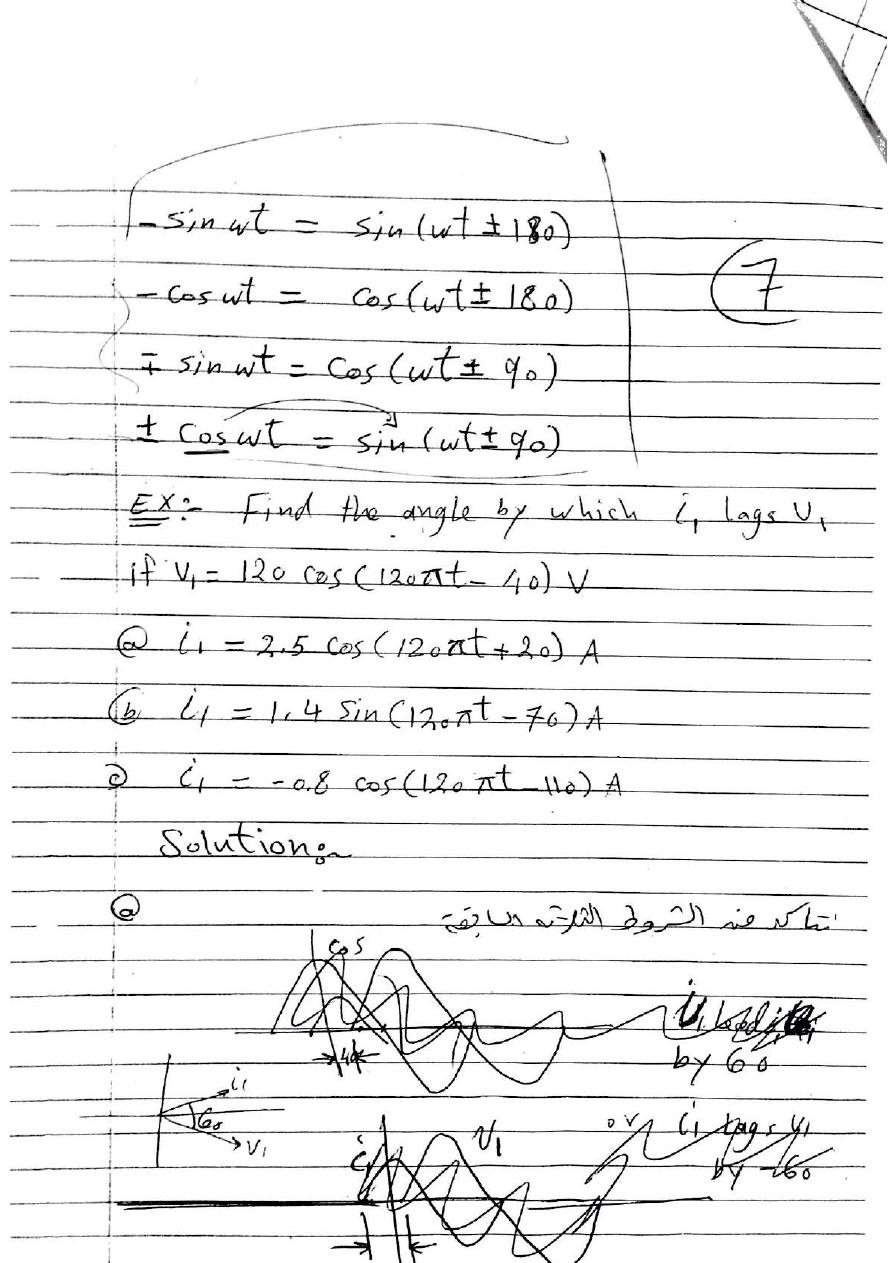 - sin wt = sin (wt ± 180)
- cos wt = cos (wt ± 180)
7
∓ sin wt = cos (wt ± 90)
± cos wt = sin (wt ± 90)
EX:- Find the angle by which i₁ lags V₁
if V₁ = 120 cos (120πt - 40) V
ⓐ i₁ = 2.5 cos (120πt + 20) A
ⓑ i₁ = 1.4 sin (120πt - 70) A
ⓒ i₁ = -0.8 cos (120πt - 110) A
Solution:
ⓐ
نتأكد من الشروط الثلاثة السابقة
cos
40
by 60
i₁
60
V₁
i₁ lags V₁
by -60
i₁
V₁